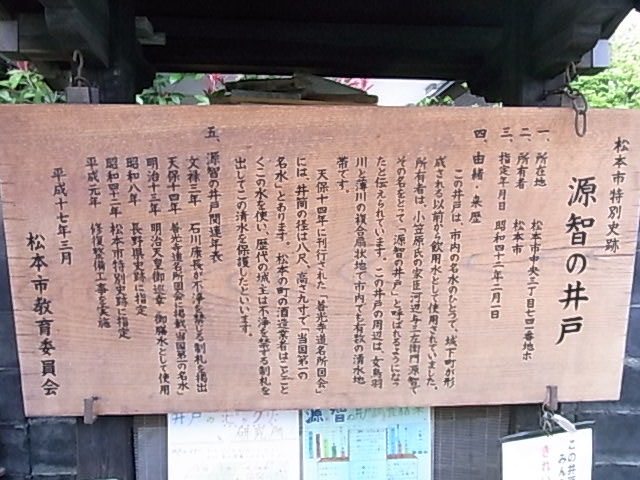 松本市特別史跡
源智の井戸
一、所在地 松本市中央三丁目七四二番地ホ
二、所有者 松本市
三、指定年月日 昭和四十二年二月一日
四、由緒・来歴
この井戸は、市内の名水のひとつで、城下町が形
成される以前から飲用水として使用されていました。
所有者は、小笠原氏の家臣河辺与三左衛門源智で
その名をとって「源智の井戸」と呼ばれるようになっ
たと伝えられています。この井戸の周辺は、女鳥羽
川と薄川の複合扇状地で市内でも有数の清水地
帯です。
天保十四年に刊行された「善光寺道名所図会」
には、井筒の径は八尺、高さ九寸で、当国第一の
名水」とあります。松本の町の酒造業者はことごと
くこの水を使い、歴代の城主は不浄を禁ずる制札を
出してこの清水を保護したといいます。
五、源智の井戸関連年表
文禄三年 石川康長が不浄を禁じる制札を掲出
天保十四年 善光寺道名所図会に掲載「当国第一の名水」
明治十三年 明治天皇御巡幸 御膳水として使用
昭和八年 長野県史跡に指定
昭和四十二年 松本市特別史跡に指定
平成元年 修復整備工事を実施
平成十七年三月
松本市教育委員会
井戸の
研究所
源智の井戸
この井
みん
きれい